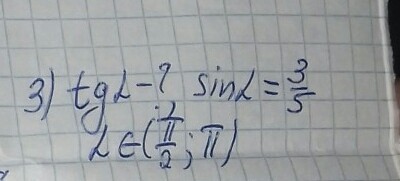 3) tgα-? sinα = 3/5
α∈(π/2; π)